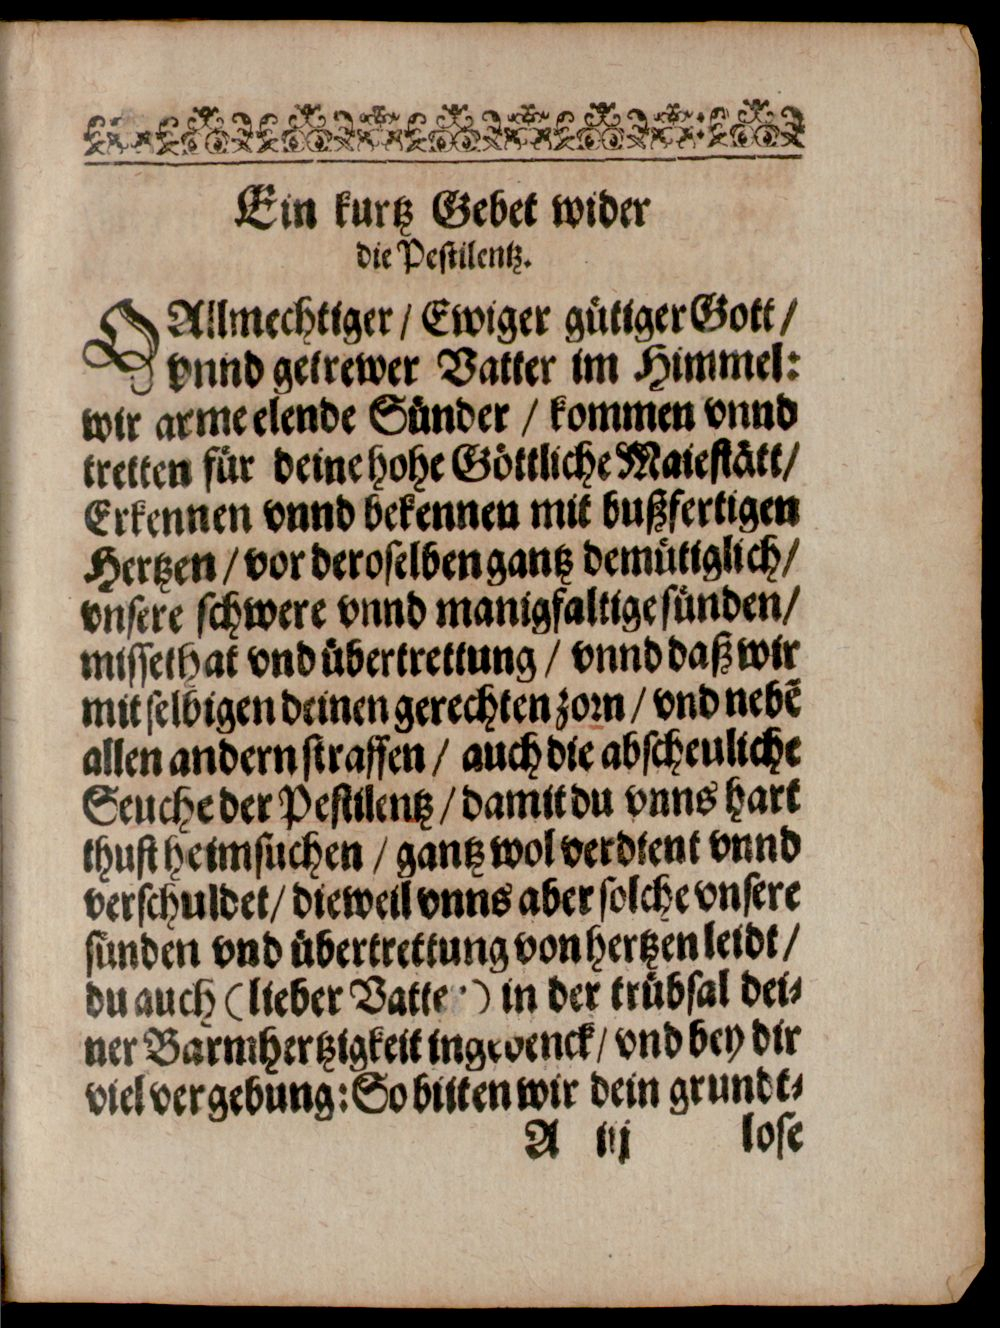 Ein kurtz Gebet wider
die Pestilentz.
O Allmechtiger / Ewiger gütiger Gott /
vnnd getrewer Vatter im Himmel:
wir arme elende Sünder / kommen vnnd
tretten für deine hohe Göttliche Maiestätt /
Erkennen vnnd bekennen mit bußfertigen
Hertzen / vor deroselben gantz demütiglich /
vnsere schwere vnnd manigfaltige sünden /
missethat vnd übertrettung / vnnd daß wir
mit selbigen deinen gerechten zorn / vnd nebē
allen andern straffen / auch die abscheuliche
Seuche der Pestilentz / damit du vnns hart
thust heimsuchen / gantz wol verdient vnnd
verschuldet / dieweil vnns aber solche vnsere
sünden vnd übertrettung von hertzen leidt /
du auch (lieber Vatter) in der trübsal dei⸗
ner Barmhertzigkeit ingedenck / vnd bey dir
viel vergebung: So bitten wir dein grundt⸗
A iij lose